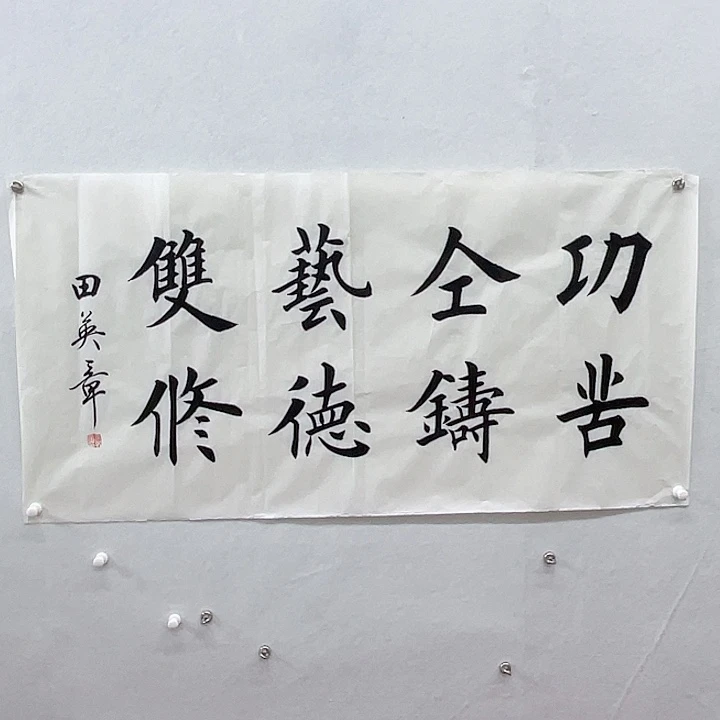 功苦
仝鑄
藝德
雙修
田英章